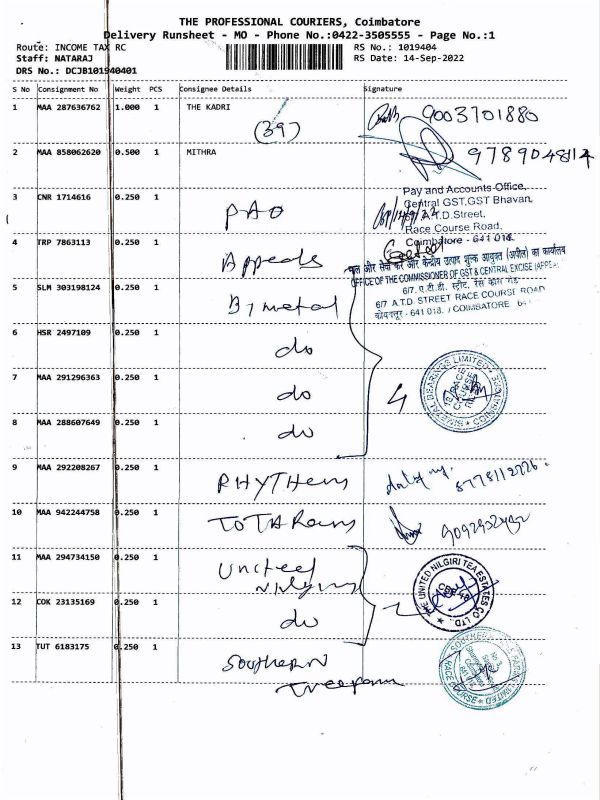 THE PROFESSIONAL COURIERS, Coimbatore
Delivery Runsheet - MO - Phone No.:0422-3505555 - Page No.:1
Route: INCOME TAX RC
RS No.: 1019404
Staff: NATARAJ
RS Date: 14-Sep-2022
DRS No.: DCJB101940401
S No Consignment No Weight PCS Consignee Details Signature
1 MAA 287636762 1.000 1 THE KADRI 9003701880
(39)
2 MAA 858062620 0.500 1 MITHRA 9789048114
Pay and Accounts Office,
Central GST,GST Bhavan,
A.T.D.Street,
Race Course Road,
Coimbatore - 641 018.
3 CNR 1714616 0.250 1 PAO
4 TRP 7863113 0.250 1 Appeals
OFFICE OF THE COMMISSIONER OF GST & CENTRAL EXCISE
6/7. ए.टी.डी. स्ट्रीट, रेस कोर्स रोड
6/7 A.T.D STREET RACE COURSE ROAD
- 641 018. / COIMBATORE
5 SLM 303198124 0.250 1 Bimetal
6 HSR 2497109 0.250 1 do
7 MAA 291296363 0.250 1 do 4
BIMETAL BEARINGS LIMITED
8 MAA 288607649 0.250 1 do
9 MAA 292208267 0.250 1
10 MAA 942244758 0.250 1
11 MAA 294734150 0.250 1 United
Nilgiris
THE UNITED NILGIRI TEA ESTATES CO LTD.
12 COK 23135169 0.250 1 do
13 TUT 6183175 0.250 1 Southern
Treefarm
RACE COURSE